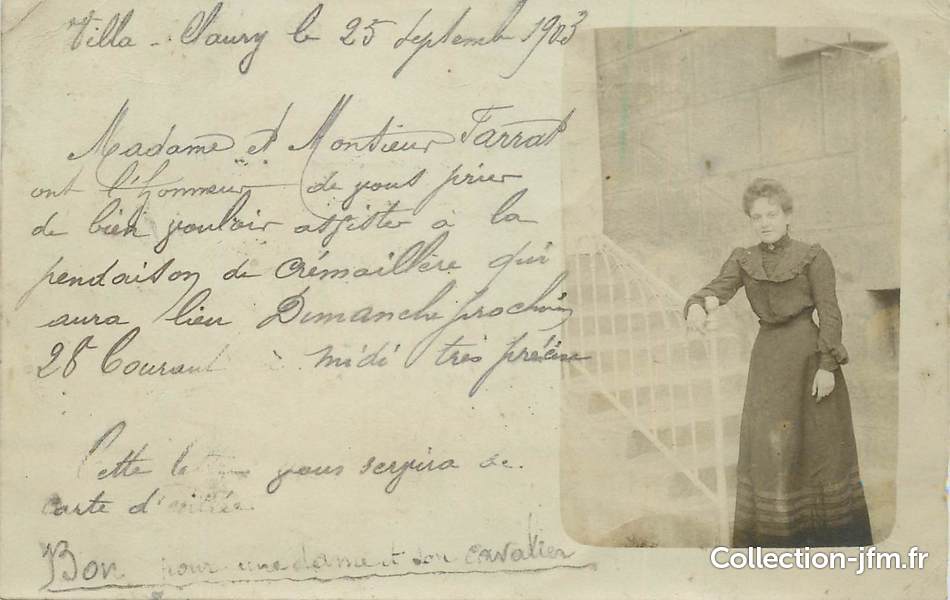 Villa - Saury le 25 septembre 1903
Madame et Monsieur Farrat
ont l'honneur de vous prier
de bien vouloir assister à la
pendaison de Crémaillère qui
aura lieu Dimanche prochain
28 Courant à midi très précise
Cette vous servira de
carte d'entrée
Bon pour une dame et son cavalier
Collection-jfm.fr